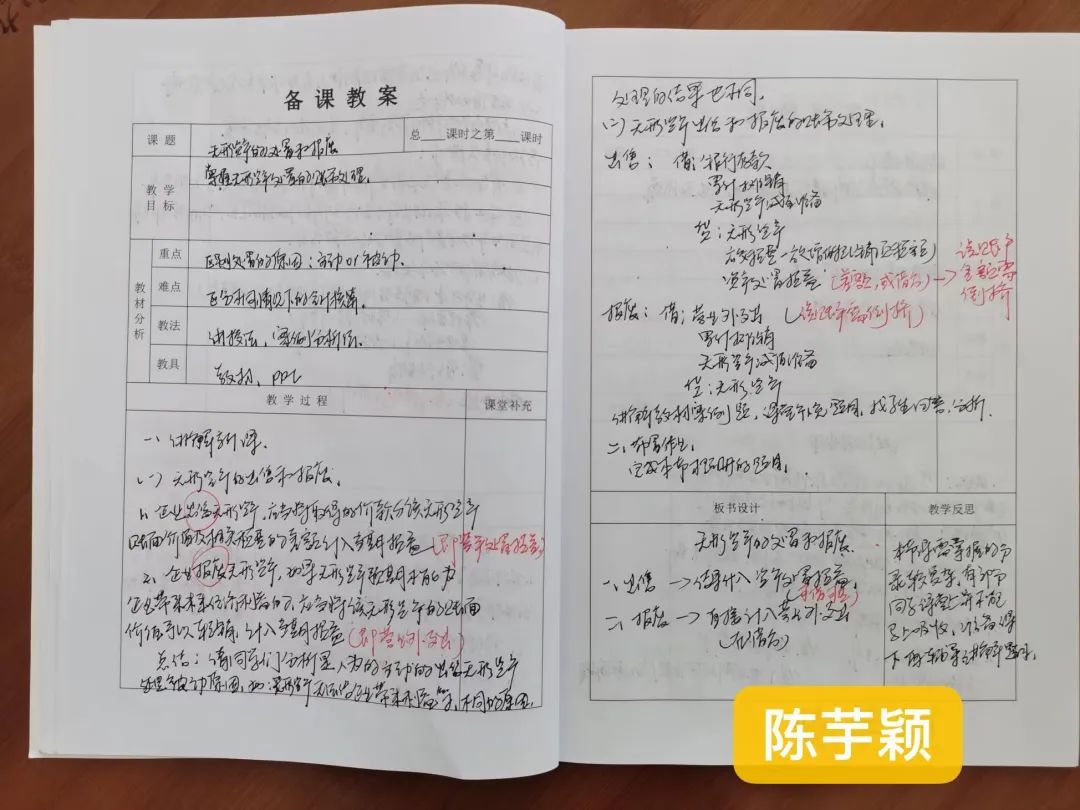 备课教案
课题
无形资产的处置和报废
总___课时之第___课时
教学目标
掌握无形资产处置的账务处理。
教材分析
重点
区别处置的原因：主动or被动。
难点
区分不同情况下的会计核算。
教法
讲授法，案例分析法。
教具
教材、PPT
教学过程
课堂补充
一、讲解新课。
(一)无形资产的出售和报废。
1、企业出售无形资产，应当将取得的价款与该无形资产
账面价值及相关税费的差额计入当期损益(即资产处置损益)
2、企业报废无形资产，如果无形资产预期不能为
企业带来未来经济利益的，应当将该无形资产的账面
价值予以转销，计入当期损益(即营业外支出)
总结：请同学们分析是人为的主动的出售无形资产
还是被动原因，如：无形资产无法给企业带来利益等，不同的原因，
处理的结果也不同。
(二)无形资产出售和报废的账务处理。
出售：借：银行存款
累计摊销
无形资产减值准备
贷：无形资产
应交税费—应交增值税(销项税额)
资产处置损益(差额，或借方)→该账户金额需倒挤
报废：借：营业外支出(该账户需倒挤)
累计摊销
无形资产减值准备
贷：无形资产
讲解教材案例题，课堂练习题目，找学生回答，分析。
二、布置作业。
完成本节练习册的题目。
板书设计
教学反思
无形资产的处置和报废
一、出售→结果计入资产处置损益
二、报废→直接计入营业外支出
(在借方)
本节所需掌握的分
录较复杂，有部分
同学课堂上不能
马上吸收，
陈芋颖